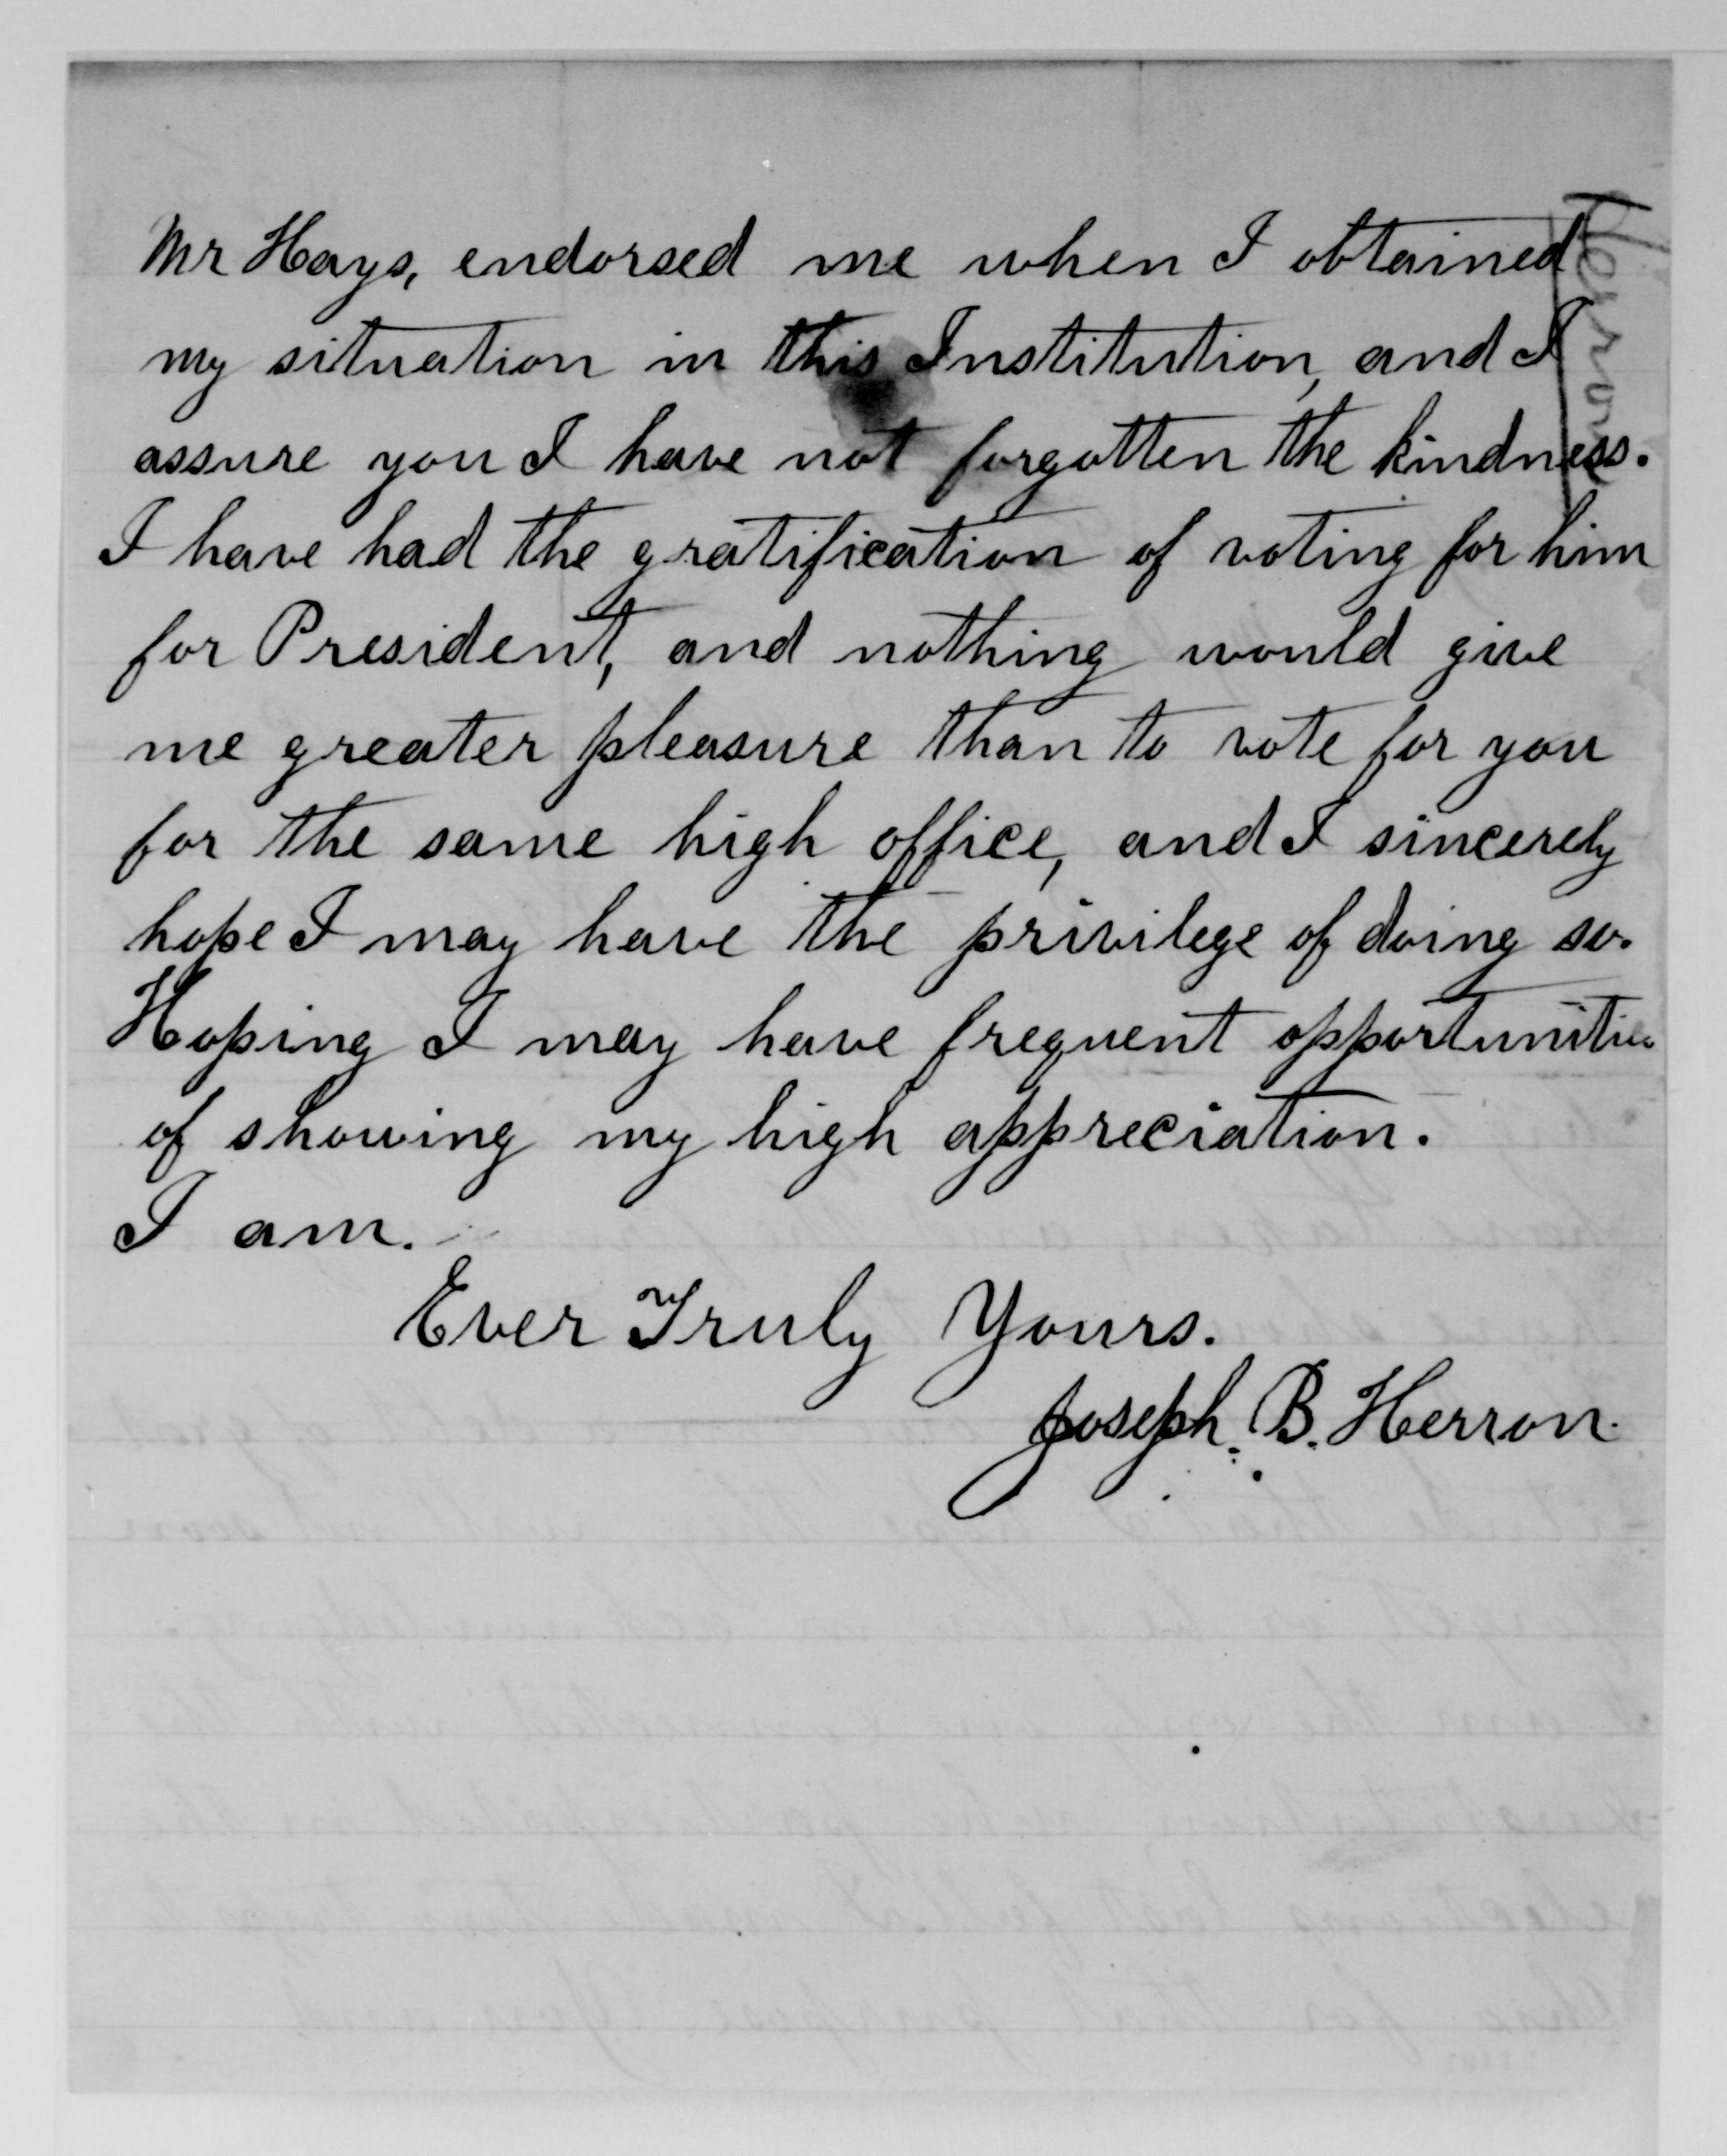 Mr Hays, endorsed me when I obtained
my situation in this Institution, and I
assure you I have not forgotten the kindness.
I have had the gratification of voting for him
for President, and nothing would give
me greater pleasure than to vote for you
for the same high office, and I sincerely
hope I may have the privilege of doing so.
Hoping I may have frequent opportunities
of showing my high appreciation.
I am.
Ever Truly Yours.
Joseph. B. Herron.
Herron